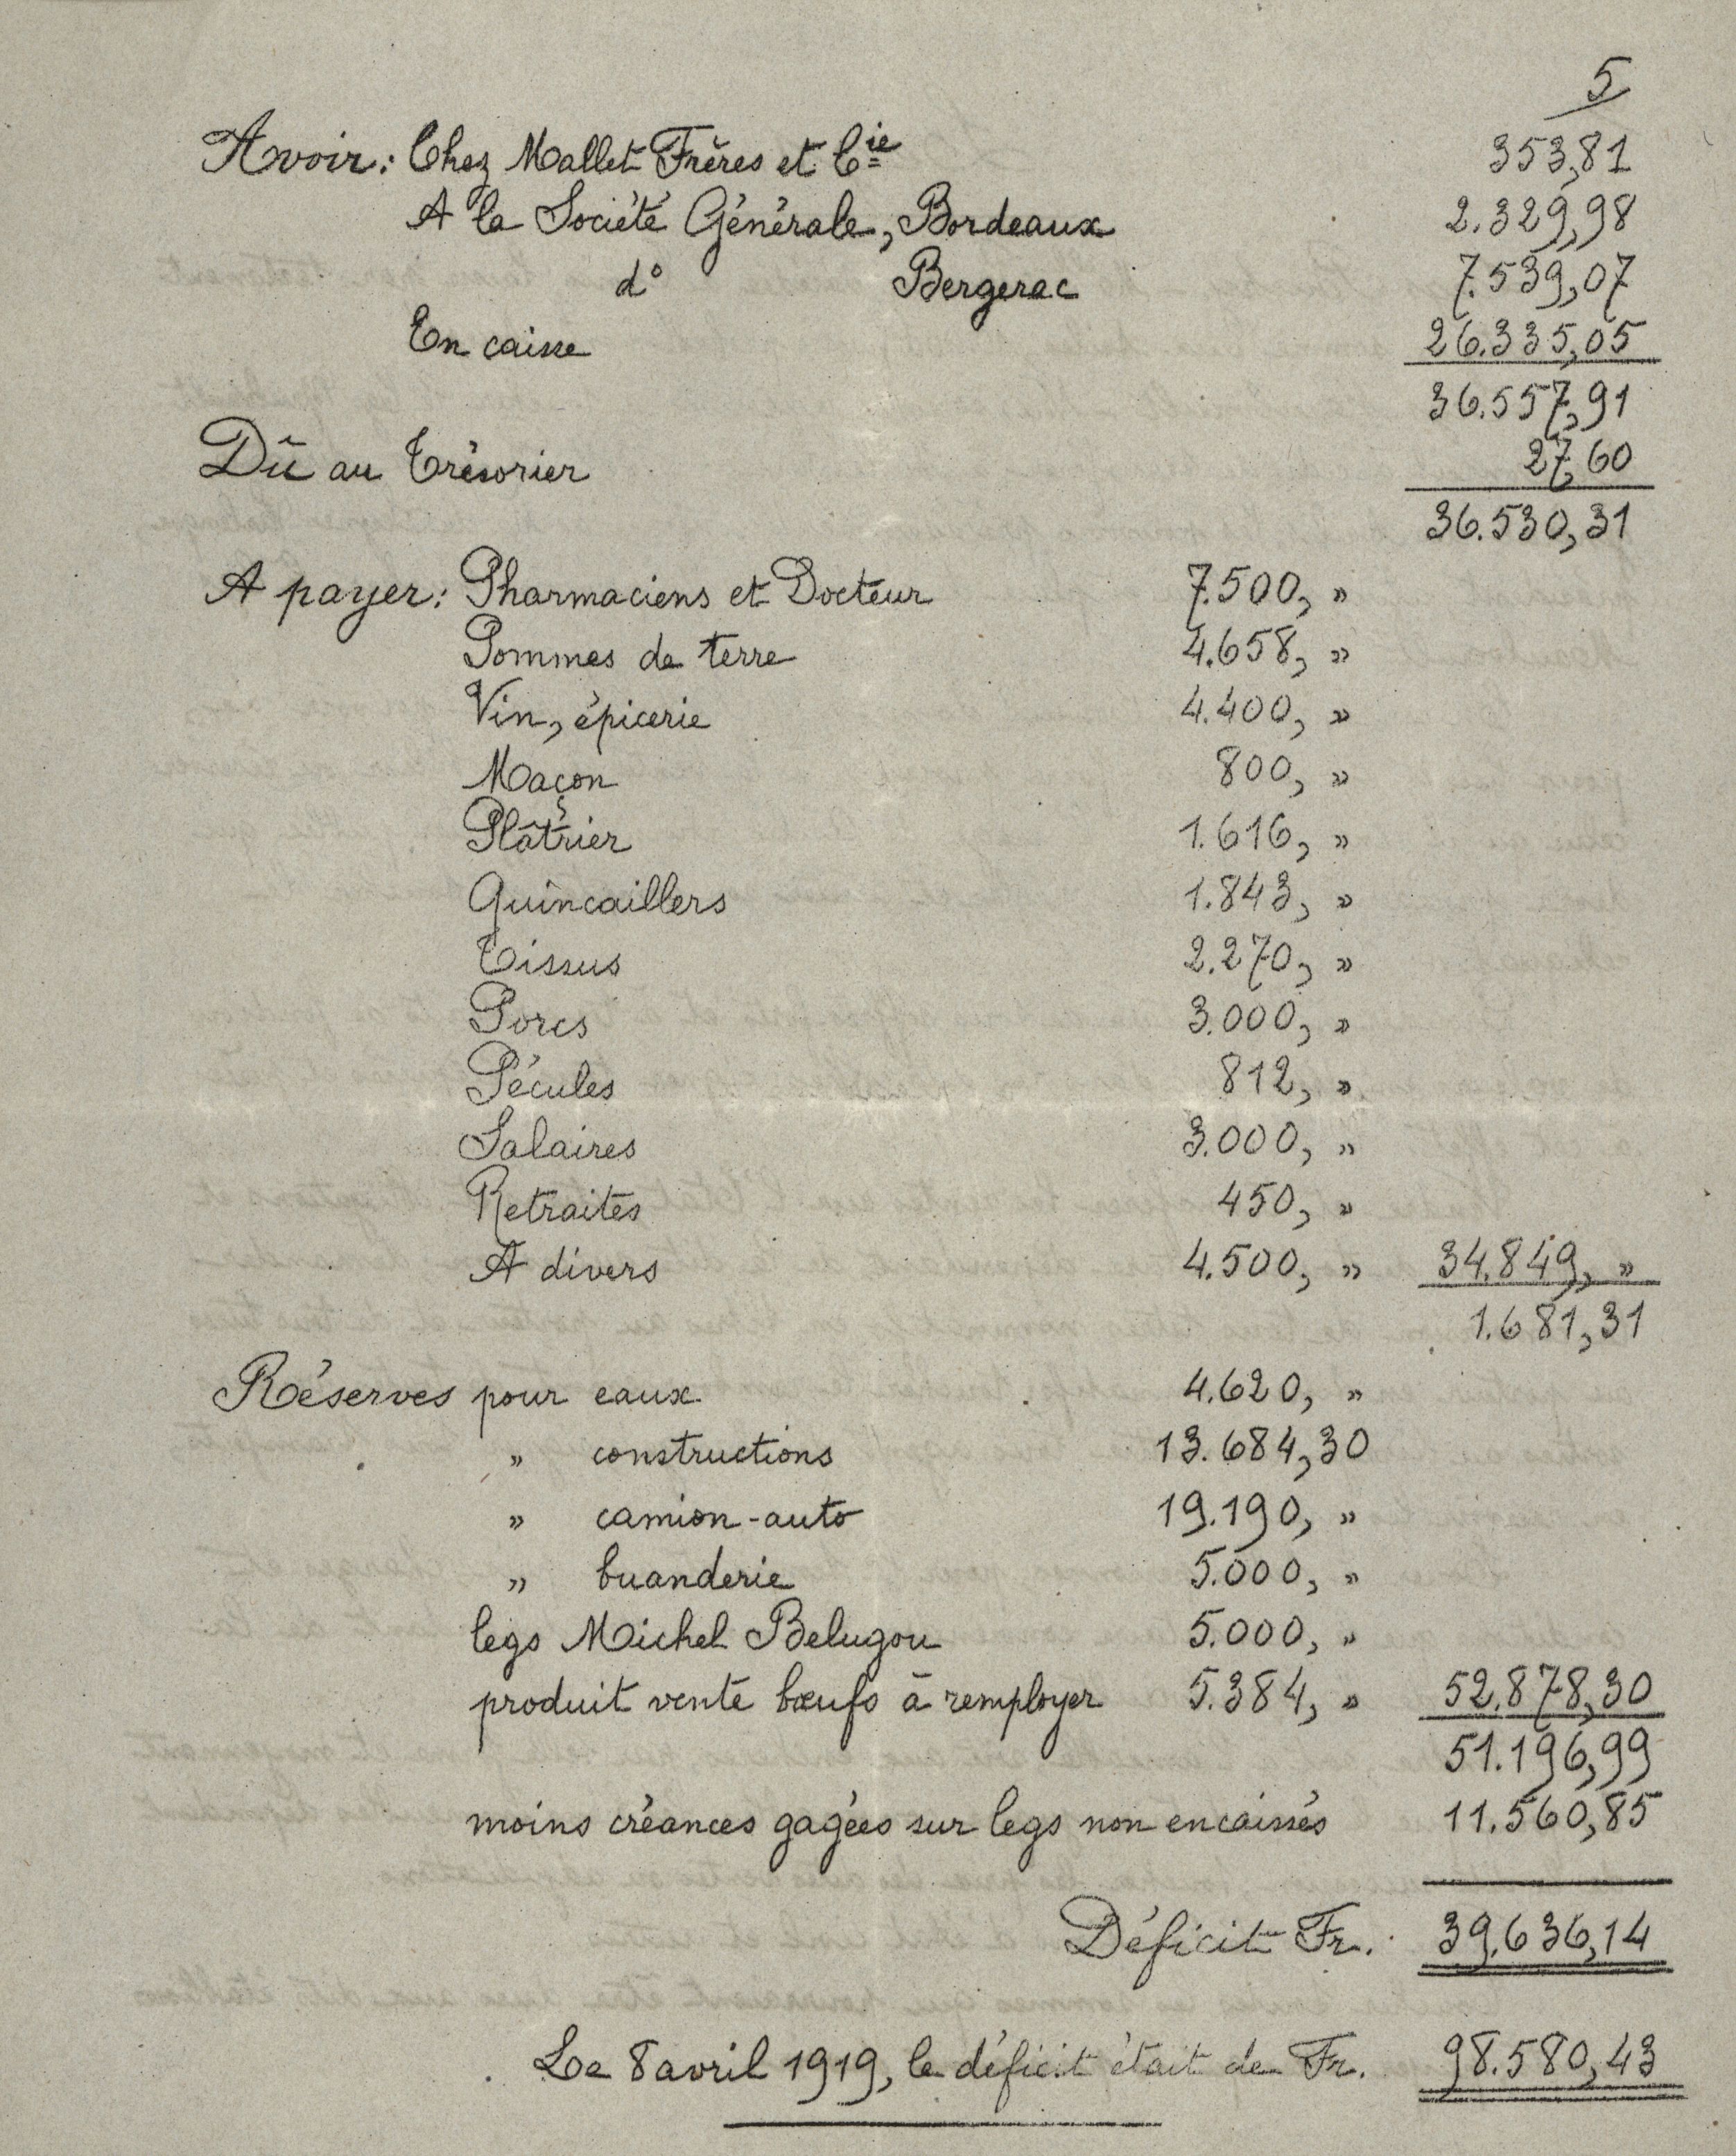 5
Avoir: Chez Mallet Frères et Cie 353,81
A la Société Générale, Bordeaux 2.329,98
d° Bergerac 7.539,07
En caisse 26.335,05
36.557,91
Dû au Trésorier 27,60
36.530,31
A payer: Pharmaciens et Docteur 7.500, "
Pommes de terre 4.658, "
Vin, épicerie 4.400, "
Maçon 800, "
Plâtrier 1.616, "
Quincaillers 1.843, "
Tissus 2.270, "
Porcs 3.000, "
Pécules 812, "
Salaires 3.000, "
Retraites 450, "
A divers 4.500, " 34.849, "
1.681,31
Réserves pour eaux 4.620, "
" constructions 13.684,30
" camion-auto 19.190, "
" buanderie 5.000, "
legs Michel Belugou 5.000, "
produit vente bœufs à remployer 5.384, " 52.878,30
51.196,99
moins créances gagées sur legs non encaissés 11.560,85
Déficit Fr. 39.636,14
Le 8 avril 1919, le déficit était de Fr. 98.580,43